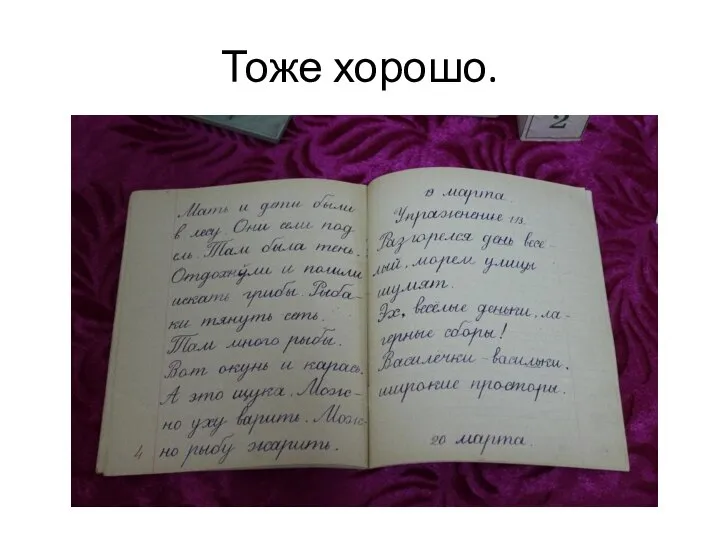 Тоже хорошо.
2
Мать и дети были
в лесу. Они сели под
ель. Там была тень.
Отдохнули и пошли
искать грибы. Рыба-
ки тянуть сеть.
Там много рыбы.
Вот окунь и карась.
А это щука. Мож-
но уху варить. Мож-
но рыбу жарить.
4
19 марта.
Упражнение 113.
Разгорелся день весе-
лый, морем улицы
шумят.
Эх, весёлые деньки, ла-
герные сборы!
Василёчки-васильки,
широкие просторы.
20 марта.